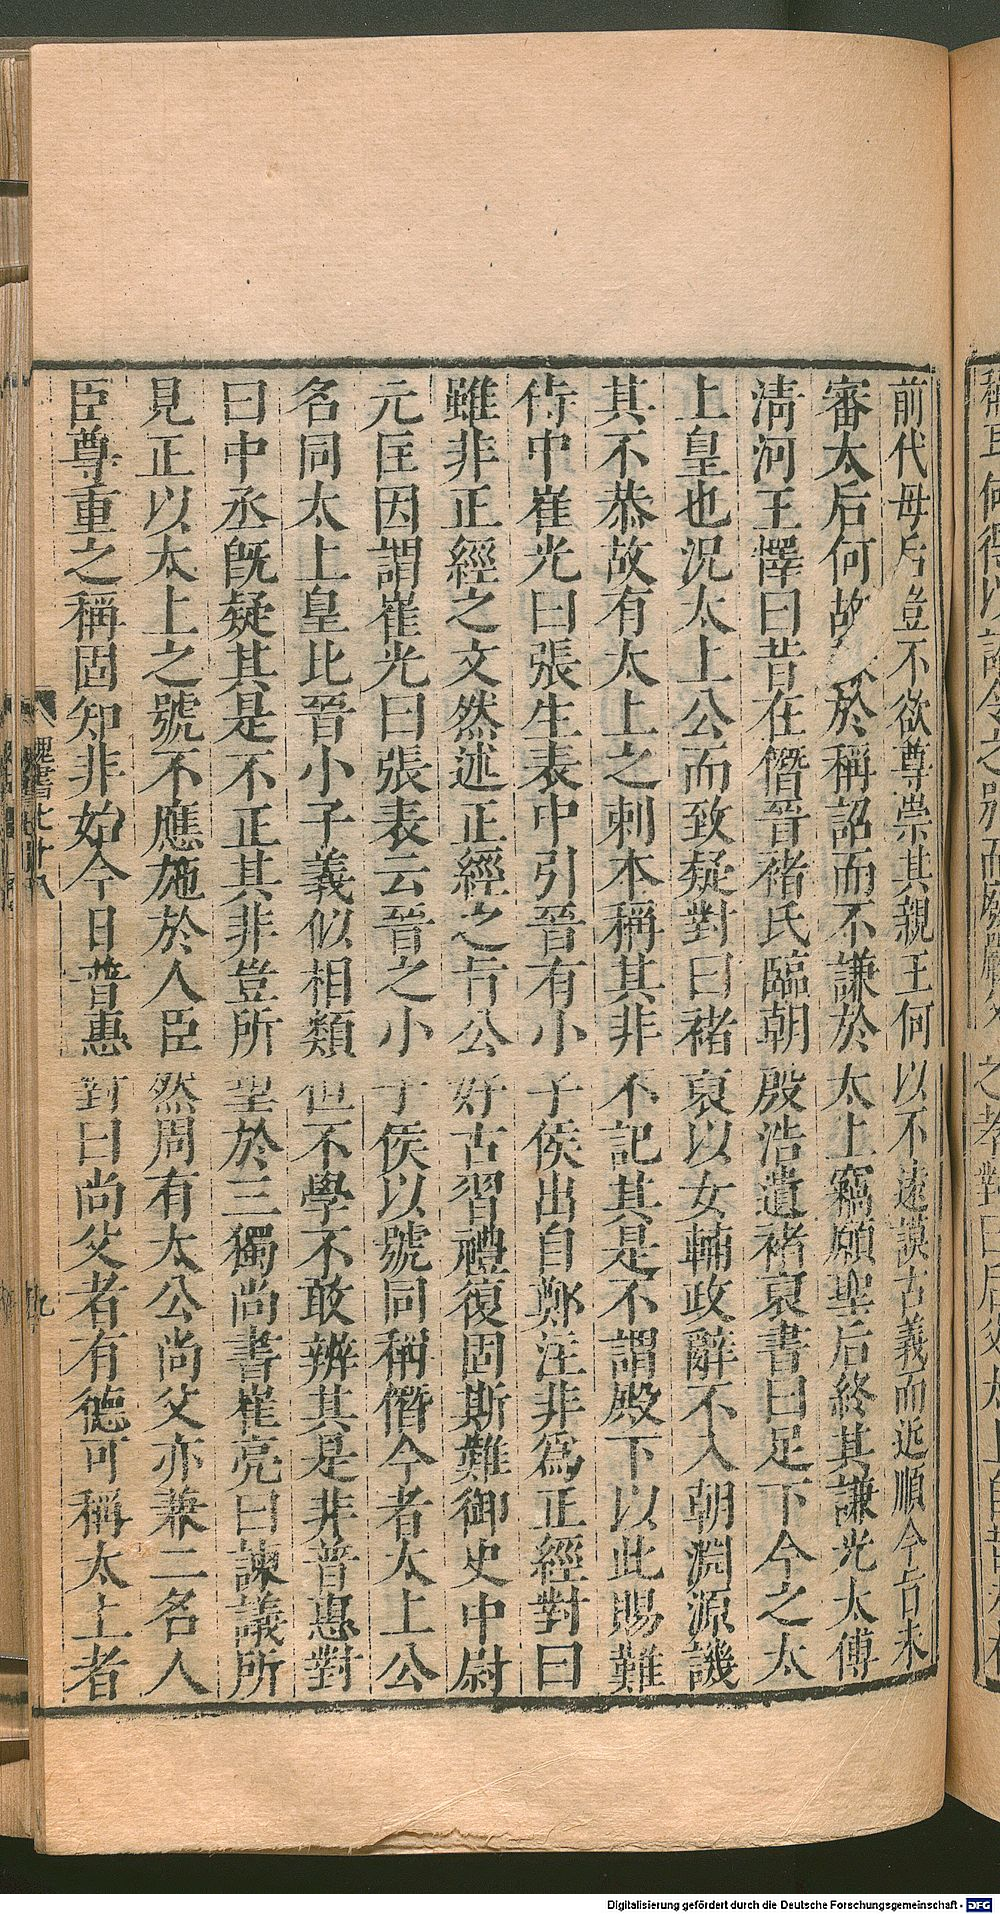 前代母后豈不欲尊崇其親王何以不遠謨古義而近順今旨未
審太后何故於稱詔而不謙於太上竊願聖后終其謙光太傅
清河王懌曰昔在僭晉褚氏臨朝殷浩遺褚裒書曰足下今之太
上皇也況太上公而致疑對曰褚裒以女輔政辭不入朝淵源譏
其不恭故有太上之刺本稱其非不記其是不謂殿下以此賜難
侍中崔光曰張生表中引晉有小子侯出自鄭注非為正經對曰
雖非正經之文然述正經之旨公好古習禮復固斯難御史中尉
元匡因謂崔光曰張表云晉之小子侯以號同稱僭今者太上公
名同太上皇比晉小子義似相類但不學不敢辨其是非普惠對
曰中丞既疑其是不正其非豈所望於三獨尚書崔亮曰諫議所
見正以太上之號不應施於人臣然周有太公尚父亦兼二名人
臣尊重之稱固知非始今日普惠對曰尚父者有德可稱太上者
魏書七十八
九
Digitalisierung gefördert durch die Deutsche Forschungsgemeinschaft - DFG